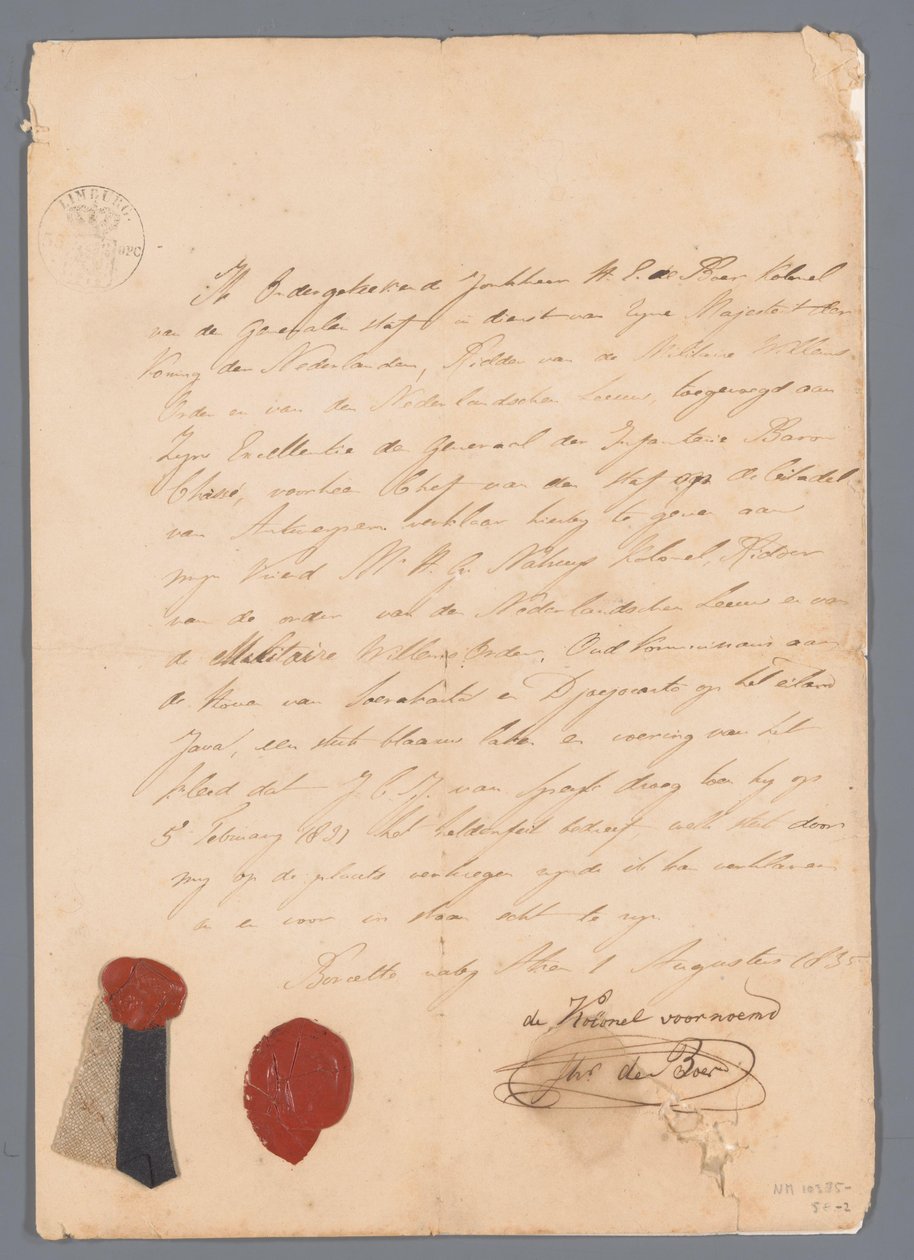 LIMBURG.
OPC
Ik Ondergeteekende Jonkheer H. E. de Boer Kolonel
van den Generalen Staf in dienst van Zyne Majesteit der
Koning der Nederlanden, Ridder van de Militaire Willems
Orden en van den Nederlandschen Leeuw, toegevoegd aan
Zyn Excellentie den Generaal der Infanterie Baron
Chassé, voorheen Chef van den Staf op de Citadel
van Antwerpen verklaar hierby te geven aan
myn Vriend Mr. H. G. Nahuys Kolonel, Ridder
van de orden van den Nederlandschen Leeuw en van
de Militaire Willems Orden, Oud Kommissaris aan
de Hoven van Soerakarta en Djocjocarta op het Eiland
Java, een stuk blaauw laken en voering van het
kleed dat J. C. J. van Speyk droeg toen hy op
5 February 1831 het heldenfeit bedreef welk stuk door
my op de plaats verkregen zynde ik kan verklaren
en er voor in staan echt te zyn
Borcette naby Aken 1 Augustus 1835
de Kolonel voornoemd
Jhr de Boer
NM 10385-
5E-2